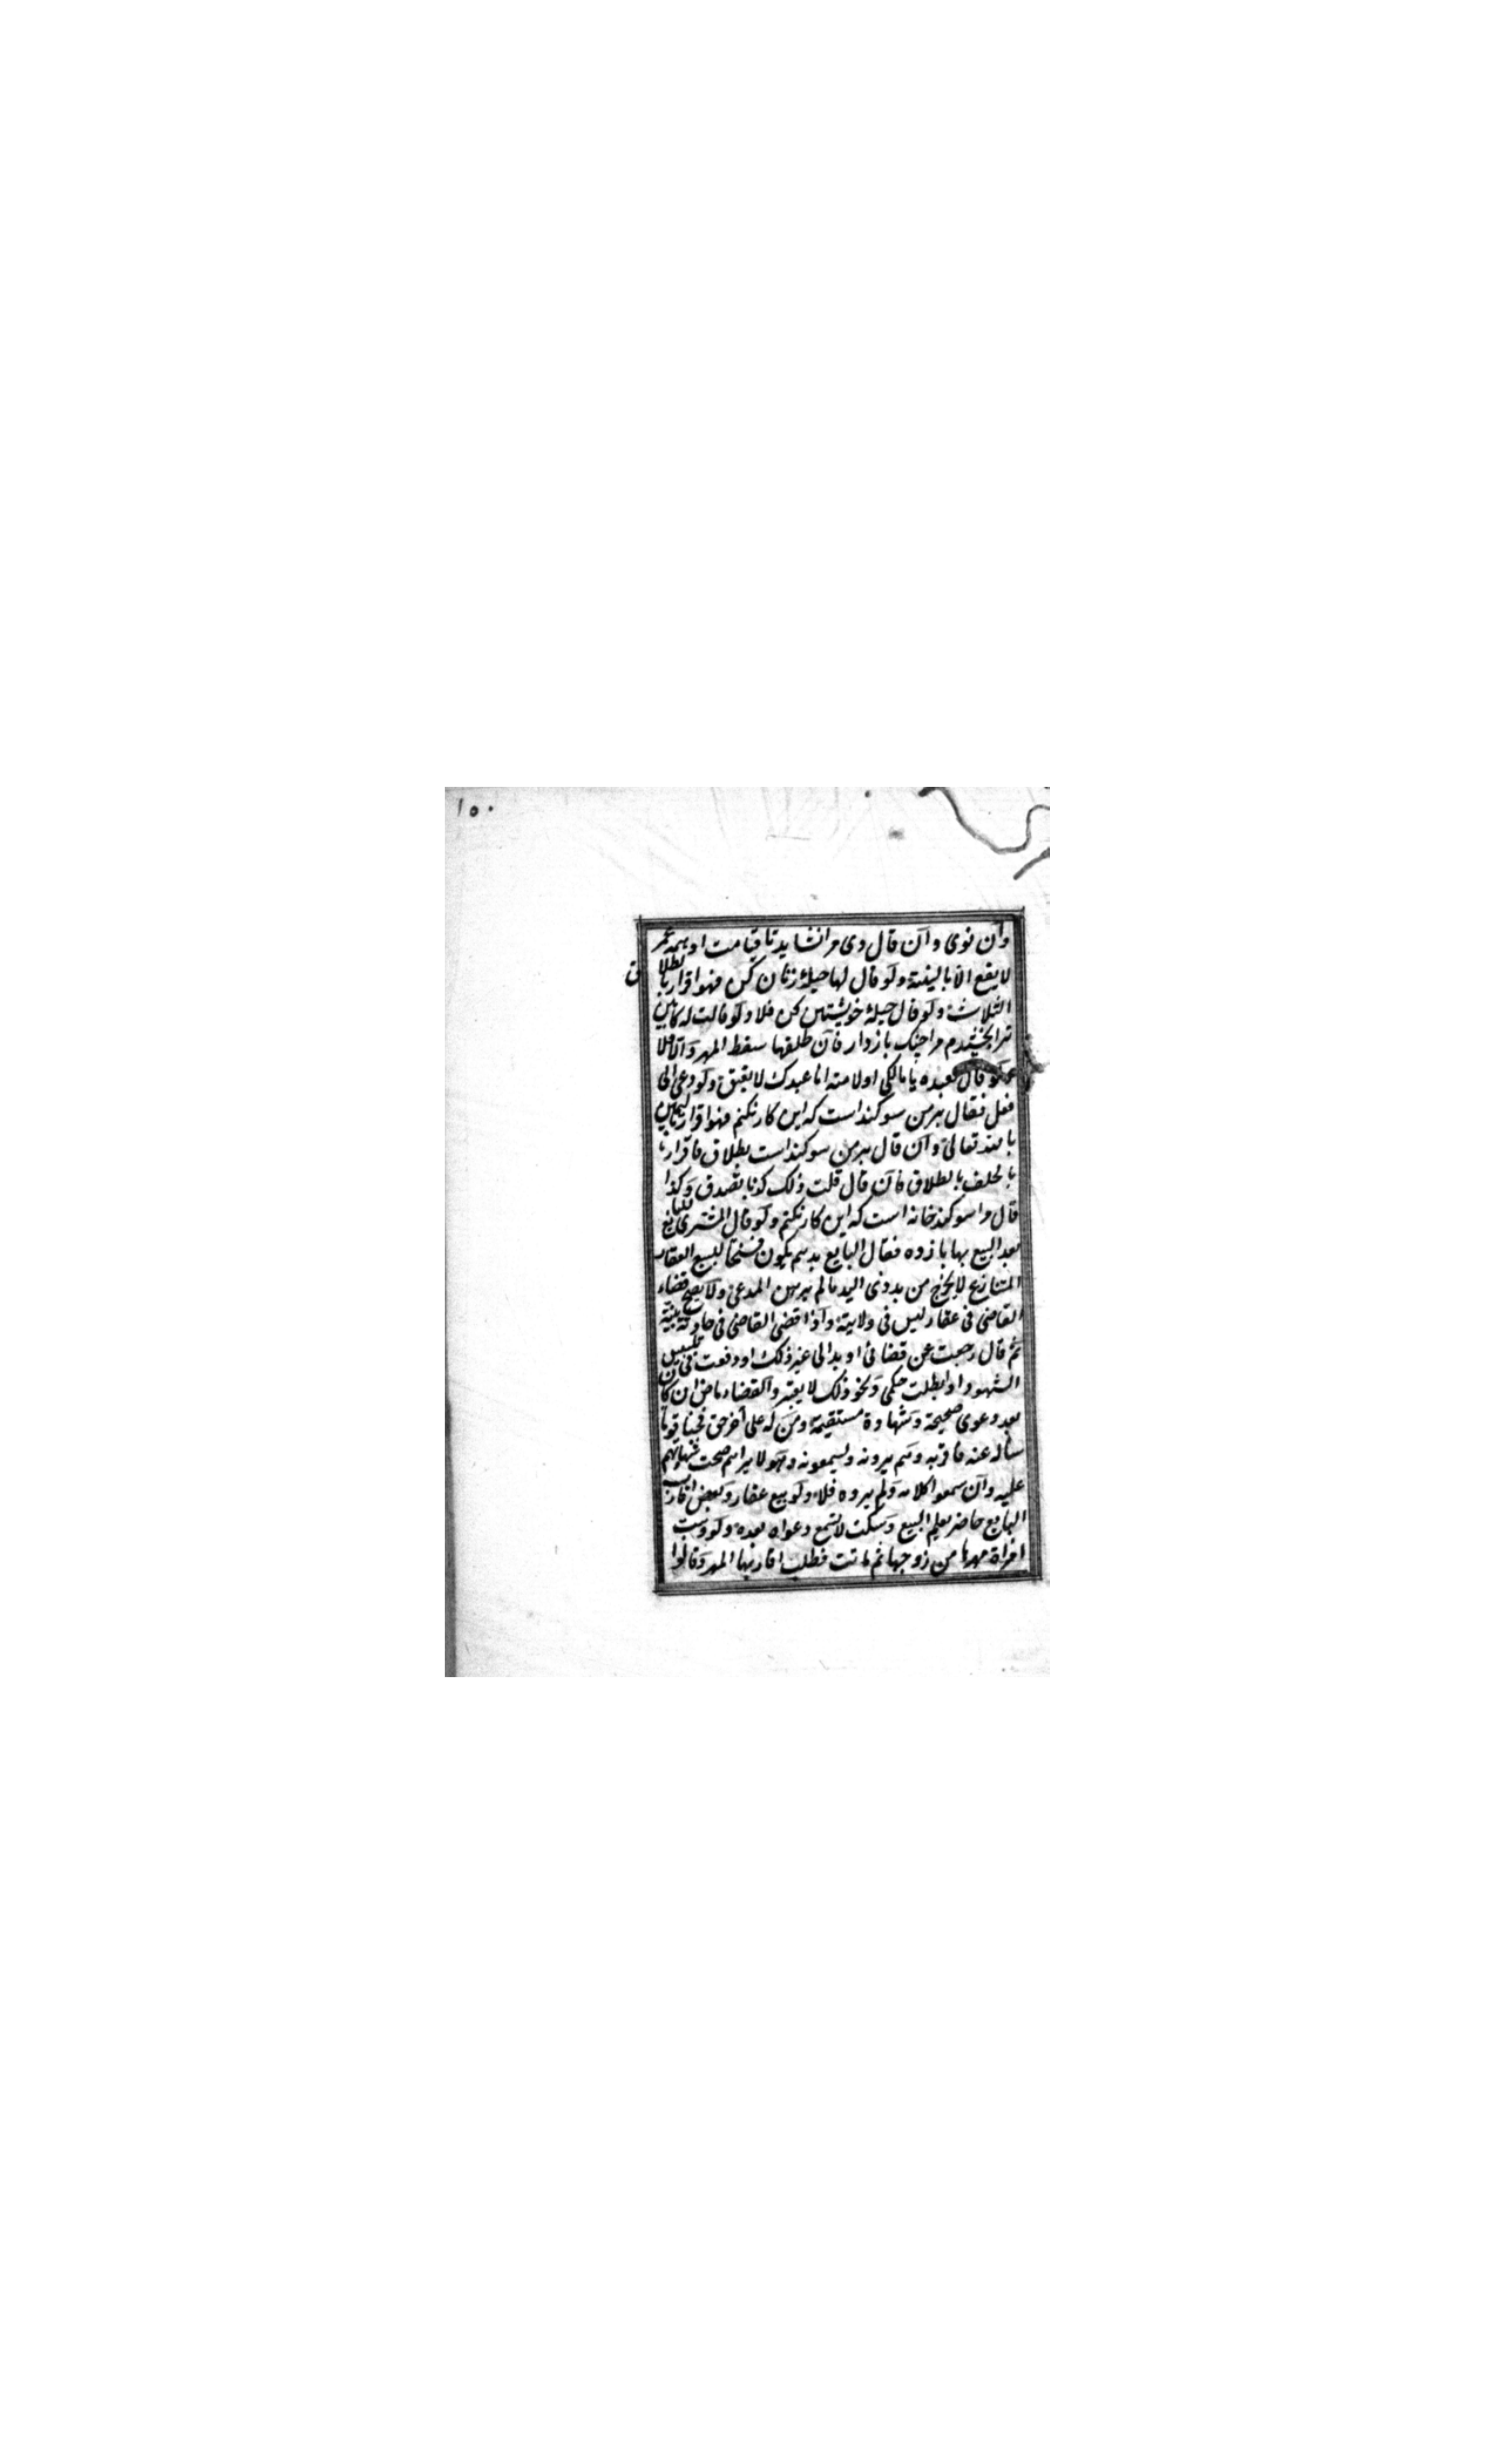 ١٥٠
وان نوى وان قال وى مرا نشايد تا قيامت او همه عمر
لا يقع الا بالنية ولو قال لها حيلهٔ زنان كن فهو اقرار بالطلاق
الثلاث ولو قال حيلهٔ خويشتن كن فلا ولو قالت له كابين
ترا بخشيدم مرا چنك باز دار فان طلقها سقط المهر والا فلا
ولو قال لعبده يا مالكى او لامته انا عبدك لا يعتق ولو دعى الى
فعل فقال بر من سوكند است كه اين كار نكنم فهو اقرار باليمين
بالله تعالى وان قال بر من سوكند است بطلاق فاقرار
بالحلف بالطلاق فان قال قلت ذلك كذبا يصدق وكذا
قال مرا سوكند خانه است كه اين كار نكنم ولو قال المشترى للبايع
بعد البيع بها باز ده فقال البايع بدهم يكون فسخا للبيع العقار
المتنازع لا يخرج من يد ذى اليد ما لم يبرهن المدعى ولا يصح قضاء
القاضى فى عقار ليس فى ولايته واذا قضى القاضى فى حادثة ببينة
ثم قال رجعت عن قضائى او بدا لى غير ذلك او وقعت فى تلبيس
الشهود او ابطلت حكمى ونحو ذلك لا يعتبر والقضاء ماض ان كان
بعد دعوى صحيحة وشهادة مستقيمة ومن له على آخر حق فخبا قوما
سأله عنه فاقر به وهم يرونه ويسمعونه وهو لا يراهم صحت شهادتهم
عليه وان سمعوا كلامه ولم يروه فلا ولو بيع عقار وبعض اقارب
البايع حاضر يعلم البيع وسكت لا تسمع دعواه بعده ولو وهبت
امرأة مهرها من زوجها ثم ماتت فطلب اقاربها المهر وقالوا